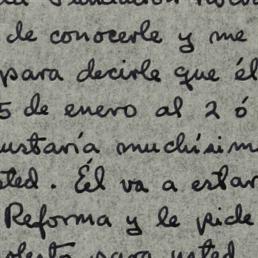 de conocerle y me
para decirle que él
5 de enero al 2 ó
ustaría muchísim
sted. Él va a estar
Reforma y le pide
para usted